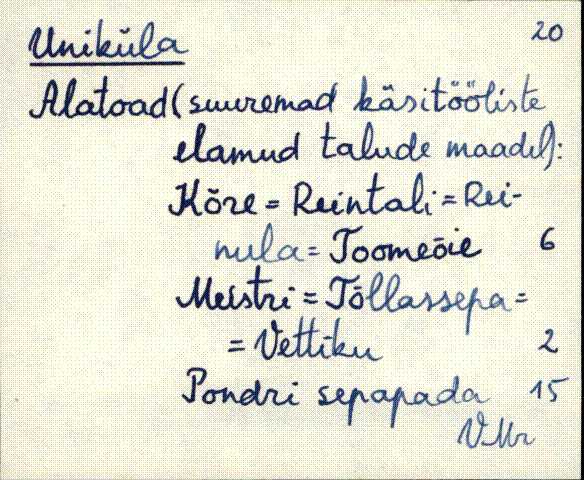 Uniküla 20
Alatoad (suuremad käsitööliste
elamud talude maadel):
Kõre = Reintali = Rei-
nula = Toomeõie 6
Meistri = Tõllassepa =
= Vettiku 2
Pondri sepapada 15
VMr